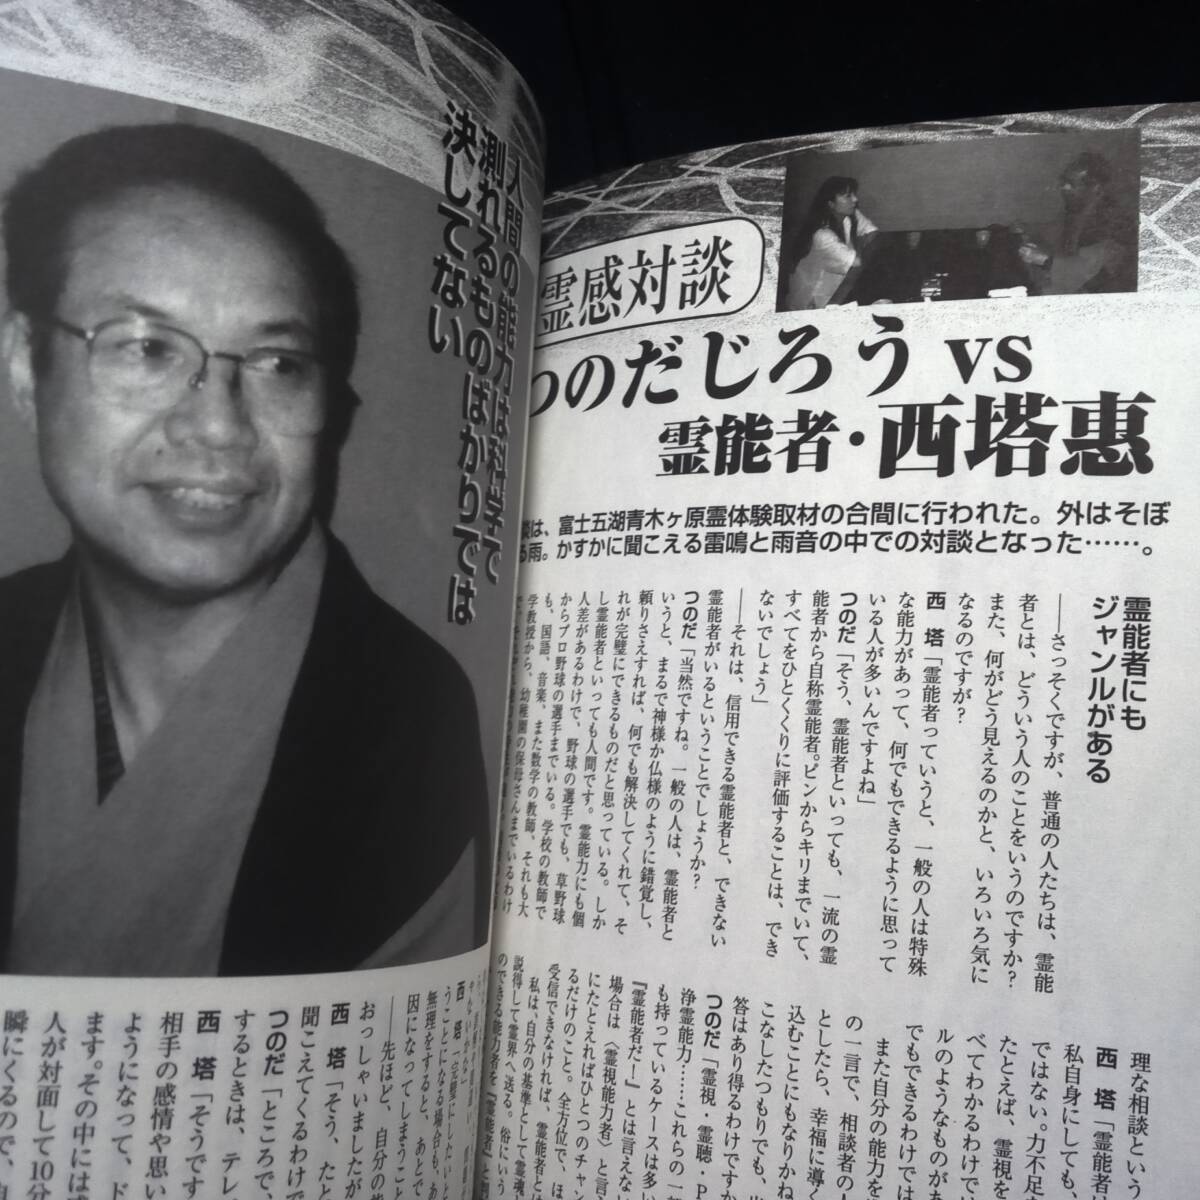 人間の能力は科学で
測れるものばかりでは
決してない
霊感対談
つのだじろう vs
霊能者・西塔恵
談は、富士五湖青木ヶ原霊体験取材の合間に行われた。外はそぼ
る雨。かすかに聞こえる雷鳴と雨音の中での対談となった……。
霊能者にも
ジャンルがある
――さっそくですが、普通の人たちは、霊能
者とは、どういう人のことをいうのですか?
また、何がどう見えるのかと、いろいろ気に
なるのですが?
西 塔「霊能者っていうと、一般の人は特殊
な能力があって、何でもできるように思って
いる人が多いんですよね」
つのだ「そう、霊能者といっても、一流の霊
能者から自称霊能者。ピンからキリまでいて、
すべてをひとくくりに評価することは、でき
ないでしょう」
――それは、信用できる霊能者と、できない
霊能者がいるということでしょうか?
つのだ「当然ですね。一般の人は、霊能者と
いうと、まるで神様か仏様のように錯覚し、
頼りさえすれば、何でも解決してくれて、そ
れが完璧にできるものだと思っている。しか
し霊能者といっても人間です。霊能力にも個
人差があるわけで、野球の選手でも、草野球
からプロ野球の選手までいる。学校の教師で
も、国語、音楽、また数学の教師、それも大
学教授から、幼稚園の保母さんまでいるわけ
理な相談という
西 塔「霊能者
私自身にしても
ではない。力不足
たとえば、霊視を
べてわかるわけで
ルのようなものがあ
でもできるわけでは
また自分の能力を
の一言で、相談者の人
としたら、幸福に導く
込むことにもなりかね
こなしたつもりでも、
答はあり得るわけですか
つのだ「霊視・霊聴・P
浄霊能力……これらの一
も持っているケースは多い
『霊能者だ!』とは言えない
場合は〈霊視能力者〉と言
にたとえればひとつのチャン
るだけのこと。全方位で、ほ
受信できなければ、霊能者とは
私は、自分の基準として霊魂
説得して霊界へ送る。俗にいう
のできる能力者を『霊能者』と
西 塔「完璧にしたいと
うことになる場合も、あ
無理をすると、あとで
因になってしまうこ
――先ほど、自分の
おっしゃいましたが
西 塔「そう、た
聞こえてくるわけで
つのだ「ところで、
するときは、テレ
西 塔「そうです
相手の感情や思い
ようになって、ド
ます。その中には
人が対面して10分
瞬にくるので、